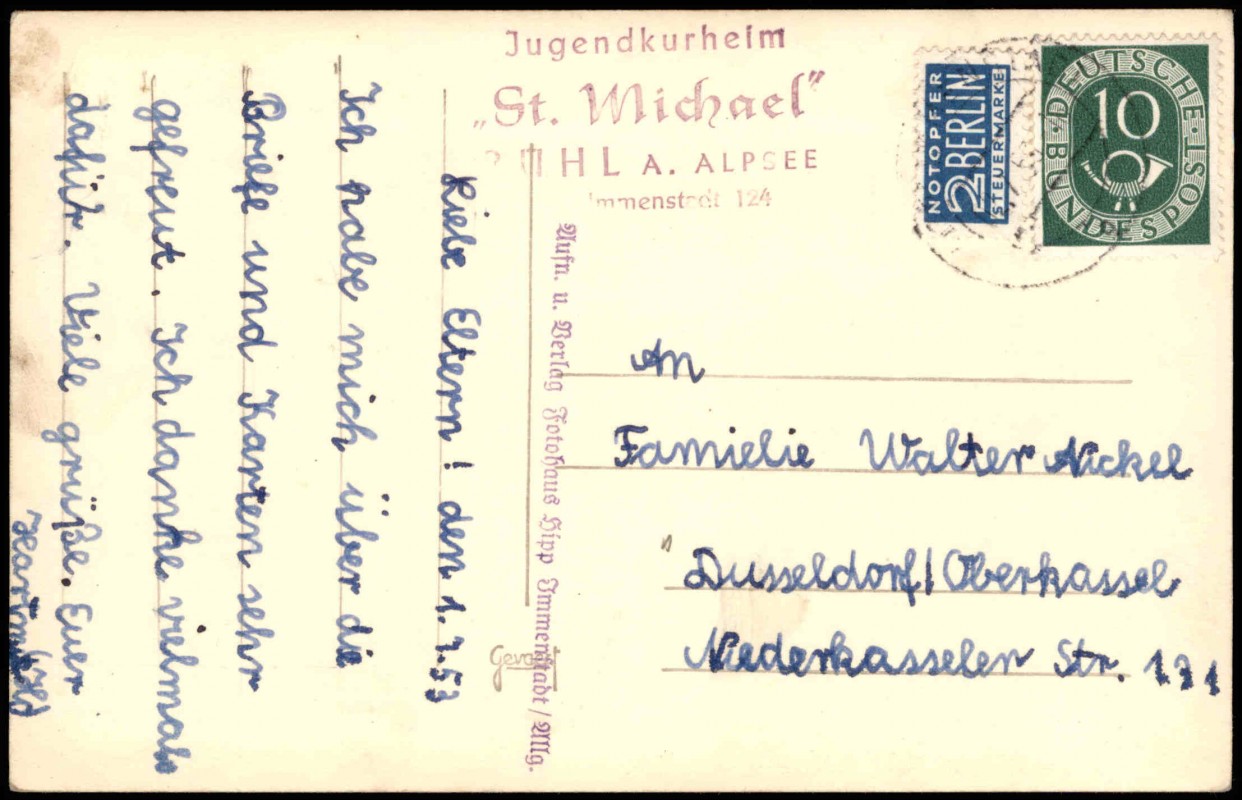 Jugendkurheim
„St. Michael"
BÜHL A. ALPSEE
Immenstadt 124
NOTOPFER
2 BERLIN
STEUERMARKE
DEUTSCHE BUNDESPOST
10
Liebe Eltern! den 1.7.53
Ich habe mich über die
Briefe und Karten sehr
gefreut. Ich danke vielmals
dafür. Viele grüße. Euer
Aufn. u. Verlag Fotohaus Hipp Immenstadt / Allg.
An
Familie Walter Nickel
Dusseldorf/Oberkassel
Niederkasseler Str. 131